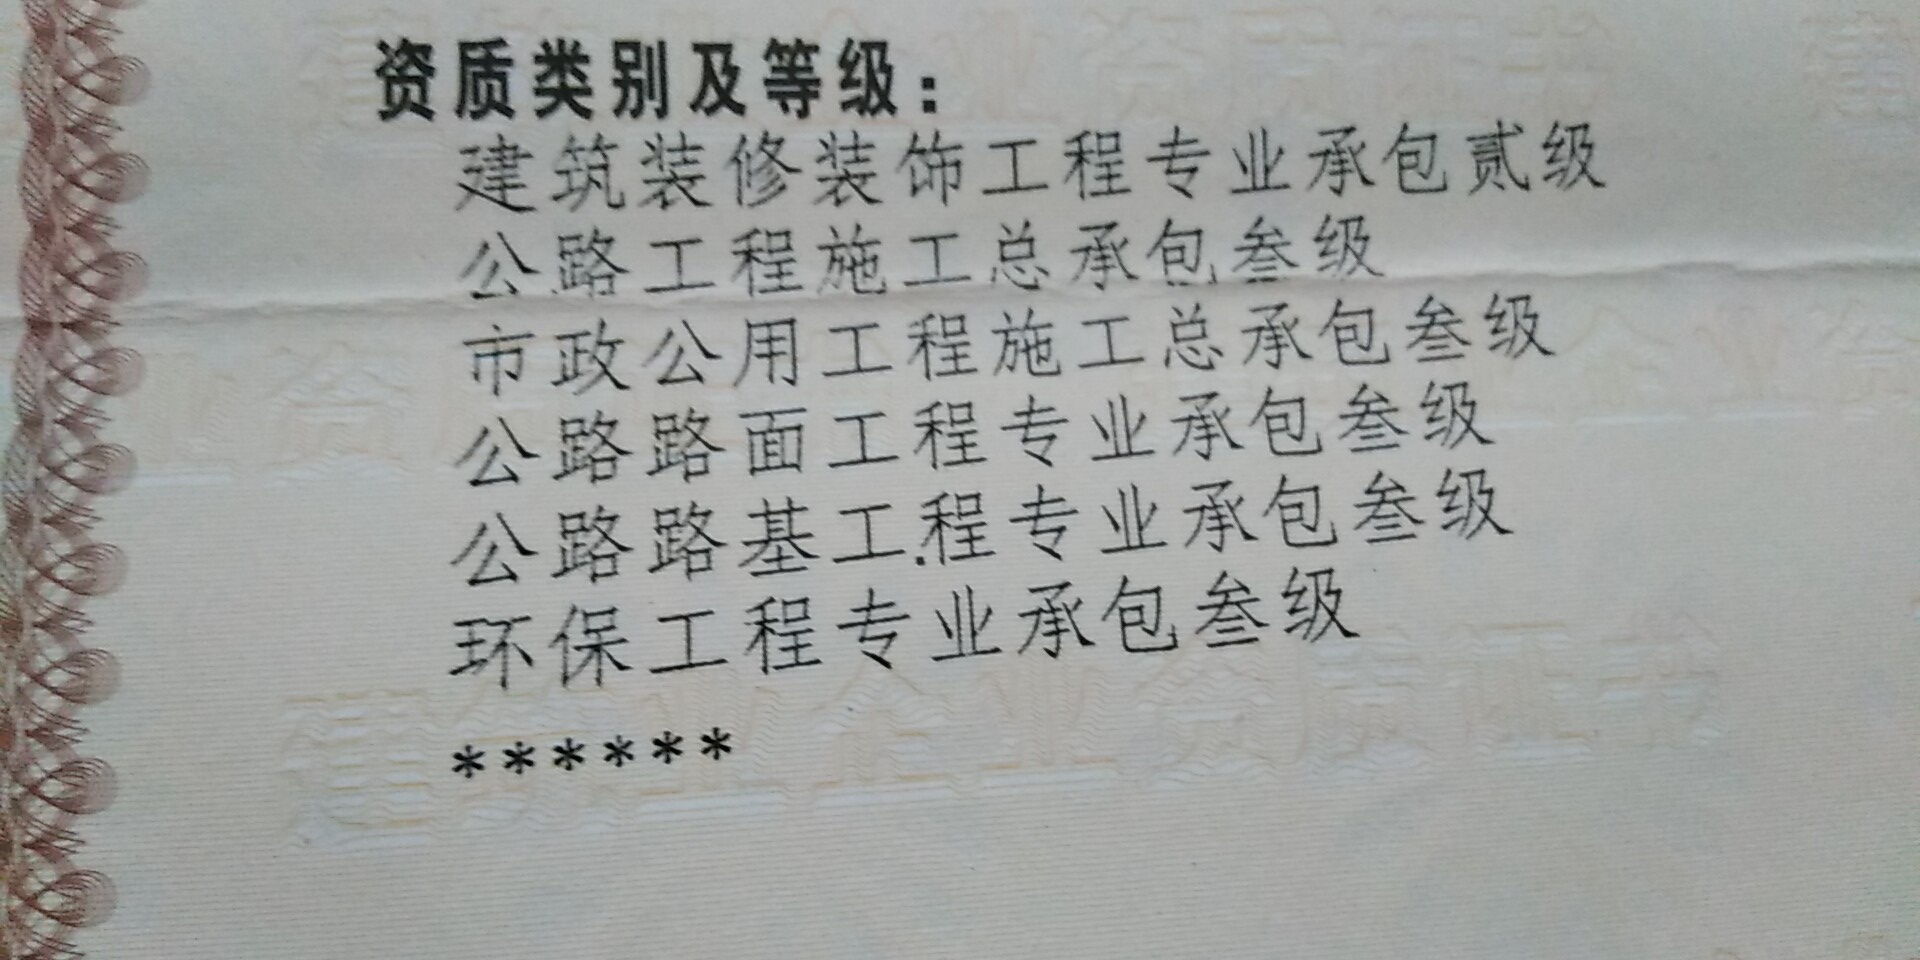 资质类别及等级：
建筑装修装饰工程专业承包贰级
公路工程施工总承包叁级
市政公用工程施工总承包叁级
公路路面工程专业承包叁级
公路路基工程专业承包叁级
环保工程专业承包叁级
建筑业企业资质证书
******